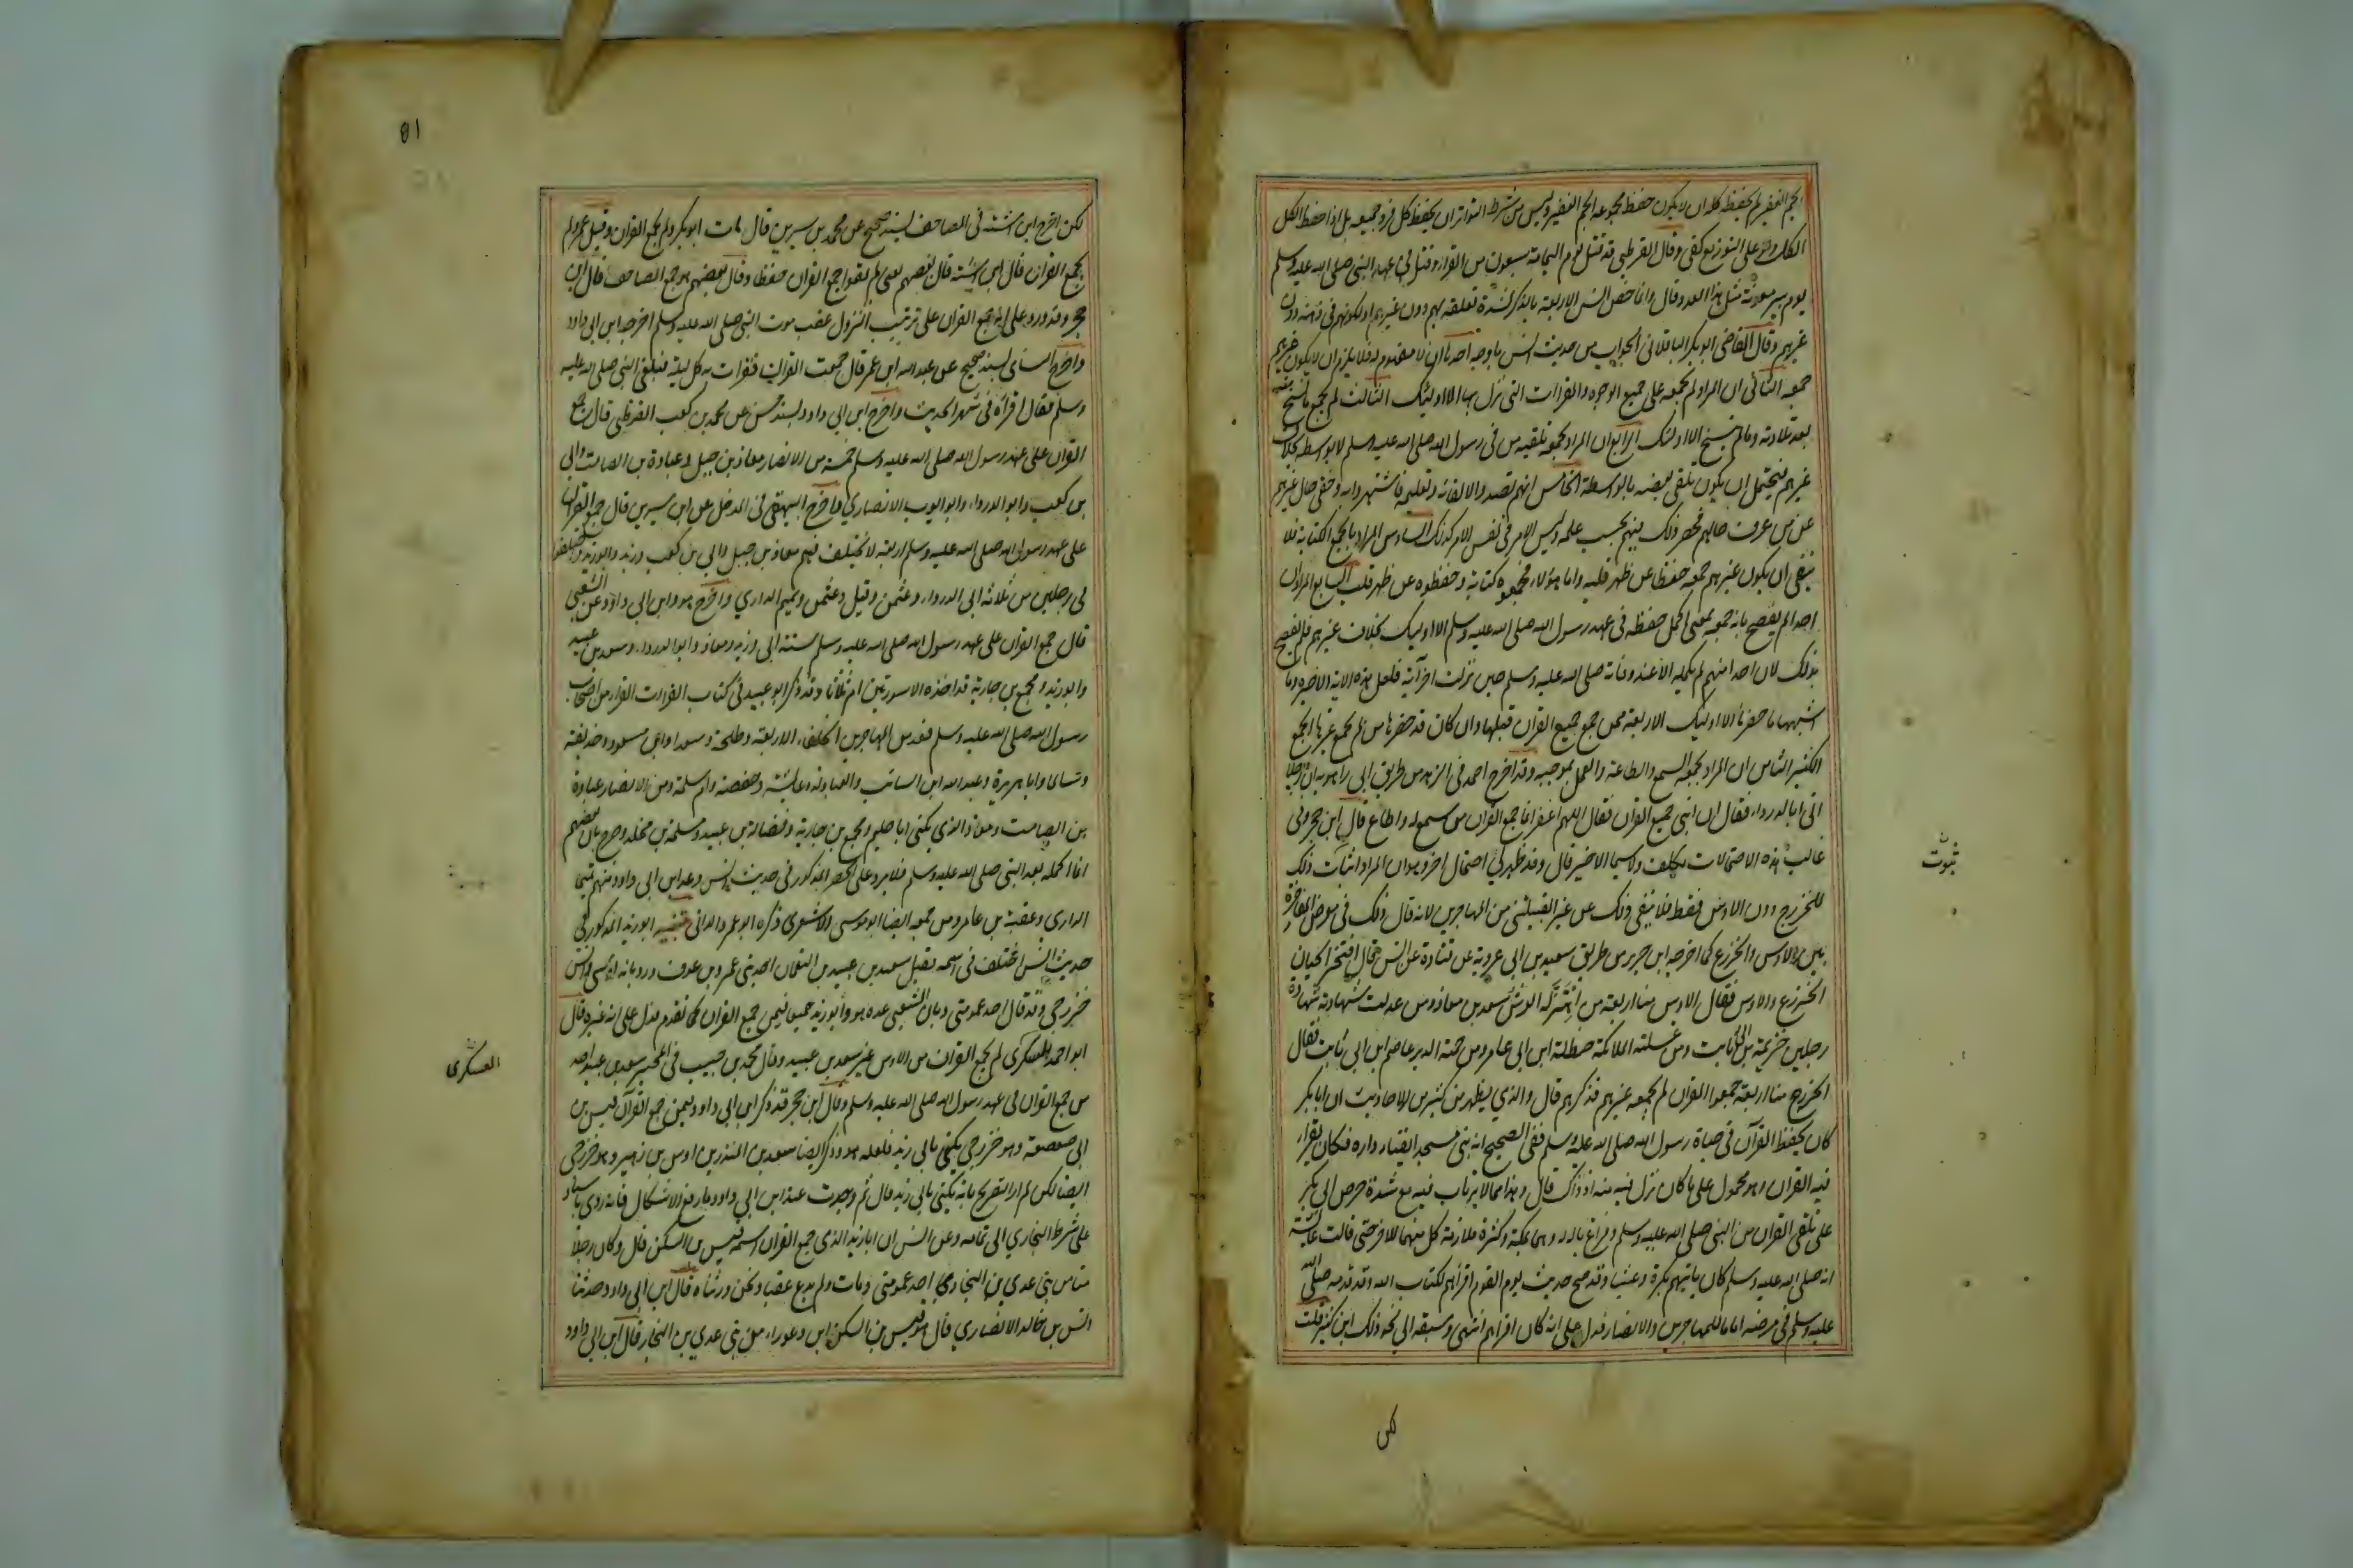 الجم الغفير لم يحفظه كله ان لا يكون حفظ مجموعه الجم الغفير وليس من شرط التواتر ان يحفظ كل فرد جميعه بل اذا حفظ الكل
الكل ولو على التوزيع كفى وقال القرطبي قد قتل يوم اليمامة سبعون من القراء وقتل في عهد النبي صلى الله عليه وسلم
يوم بير معونة مثل هذا العدد وقال وانما خص انس الاربعة بالذكر لشدة تعلقه بهم دون غيرهم او لكونهم في ذهنه دون
غيرهم وقال القاضي ابو بكر الباقلاني الجواب من حديث انس باوجه احدها ان لا مفهوم له فلا يلزم ان لا يكون غيرهم
جمعه الثاني ان المراد لم يجمعه على جميع الوجوه والقراات التي نزل بها الا اوليك الثالث لم يجمع ما نسخ منه
بعد تلاوته وما لم ينسخ الا اوليك الرابع ان المراد بجمعه تلقيه من في رسول الله صلى الله عليه وسلم لا بواسطة بخلاف
غيرهم فيحتمل ان يكون تلقى بعضه بالواسطة الخامس انهم تصدوا لالقائه وتعليمه فاشتهروا به وخفي حال غيرهم
عن من عرف حالهم فحصر ذلك فيهم بحسب علمه وليس الامر في نفس الامر كذلك السادس المراد بالجمع الكتابة فلا
ينفي ان يكون غيرهم جمعه حفظا عن ظهر قلبه واما هؤلاء فجمعوه كتابة وحفظوه عن ظهر قلب السابع المراد ان
احدا لم يفصح بانه جمعه بمعنى اكمل حفظه في عهد رسول الله صلى الله عليه وسلم الا اوليك بخلاف غيرهم فلم يفصح
بذلك لان احدا منهم لم يكمله الا عند وفاة صلى الله عليه وسلم حين نزلت اخر آية فلعل هذه الاية الاخيرة وما
اشبهها ما حضرها الا اوليك الاربعة ممن جمع جميع القران قبلها وان كان قد حضرها من لم يجمع غيرها الجمع
الكثير الثامن ان المراد بجمعه السمع والطاعة والعمل بموجبه وقد اخرج احمد في الزهد من طريق ابي زاهرية ان رجلا
اتى ابا الدرداء فقال ان ابني جمع القران فقال اللهم اغفر انما جمع القران من سمع له واطاع قال ابن حجر وفي
غالب هذه الاحتمالات تكلف ولا سيما الاخير قال وقد ظهر لي احتمال اخر وهو ان المراد اثبات ذلك
للخزرج دون الاوس فقط فلا ينفي ذلك عن غير القبيلتين من المهاجرين لانه قال ذلك في معرض المفاخرة
بين الاوس والخزرج كما اخرجه ابن جرير من طريق سعيد بن ابي عروبة عن قتادة عن انس قال افتخر الحيان
الخزرج والاوس فقال الاوس منا اربعة من اهتز له العرش سعد بن معاذ ومن عدلت شهادته شهادة
رجلين خزيمة بن ثابت ومن غسلته الملائكة حنظلة ابن ابي عامر ومن حمته الدبر عاصم ابن ابي ثابت فقال
الخزرج منا اربعة جمعوا القران لم يجمعه غيرهم فذكرهم قال والذي يظهر من كثير من الاحاديث ان ابا بكر
كان يحفظ القرآن في حياة رسول الله صلى الله عليه وسلم ففي الصحيح انه بنى مسجدا بفناء داره فكان يقرا
فيه القران وهو محمول على ما كان نزل فيه منه اذ ذاك قال وهذا مما لا يرتاب فيه مع شدة حرص ابي بكر
على تلقي القران من النبي صلى الله عليه وسلم وفراغ باله له وهما بمكة وكثرة ملازمة كل منهما للاخر حتى قالت عائشة
انه صلى الله عليه وسلم كان ياتيهم بكرة وعشيا وقد صح حديث يوم القوم اقراهم لكتاب الله وقد قدمه صلى الله
عليه وسلم في مرضه اماما للمهاجرين والانصار فدل على انه كان اقراهم انتهى وسبقه الى نحو ذلك ابن كثير قلت
ثبوت
لكن
81
لكن اخرج ابن اشته في المصاحف بسند صحيح عن محمد بن سيرين قال مات ابو بكر ولم يجمع القران وقتل عمر ولم
يجمع القران قال ابن اشته قال بعضهم يعني لم يقرا جمع القران حفظا وقال بعضهم هو جمع المصاحف قال ابن
حجر وقد ورد عن علي انه جمع القران على ترتيب النزول عقب موت النبي صلى الله عليه وسلم اخرجه ابن ابي داود
واخرج النساي بسند صحيح عن عبد الله ابن عمر قال جمعت القران فقرات به كل ليلة فبلغ النبي صلى الله عليه
وسلم فقال اقراه في شهر الحديث واخرج ابن ابي داود بسند حسن عن محمد بن كعب القرظي قال جمع
القران على عهد رسول الله صلى الله عليه وسلم خمسة من الانصار معاذ بن جبل وعبادة بن الصامت وابي
بن كعب وابو الدرداء وابو ايوب الانصاري واخرج البيهقي في المدخل عن ابن سيرين قال جمع القران
على عهد رسول الله صلى الله عليه وسلم اربعة لا يختلف فيهم معاذ بن جبل وابي بن كعب وزيد وابو زيد واختلفوا
في رجلين من ثلاثة ابي الدرداء وعثمن وقيل وعثمن وتميم الداري واخرج هو وابن ابي داود عن الشعبي
قال جمع القران على عهد رسول الله صلى الله عليه وسلم ستة ابي وزيد ومعاذ وابو الدرداء وسعد بن عبيد
وابو زيد ومجمع بن جارية قد اخذه الا سورتين او ثلاثا وقد ذكر ابو عبيد في كتاب القراات القراء من اصحاب
رسول الله صلى الله عليه وسلم فعد من المهاجرين الخلفاء الاربعة وطلحة وسعدا وابن مسعود وحذيفة
وسالما وابا هريرة وعبد الله ابن السائب والعبادلة وعايشة وحفصة وام سلمة ومن الانصار عبادة
بن الصامت ومعاذ الذي يكنى ابا حليم ومجمع بن جارية وفضالة بن عبيد ومسلمة بن مخلد وصرح بان بعضهم
انما اكمله بعد النبي صلى الله عليه وسلم فلا يرد على الحصر المذكور في حديث انس وعد ابن ابي داود منهم تميما
الداري وعقبة بن عامر ومن جمعه ايضا ابو موسى الاشعري ذكره ابو عمرو الداني تنبيه ابو زيد المذكور في
حديث انس اختلف في اسمه فقيل سعد بن عبيد بن النعمان احد بني عمرو بن عوف ورد بانه اوسي وانس
خزرجي وقد قال احد عمومتي وبان الشعبي عده هو وابو زيد جميعا فيمن جمع القران كما تقدم فدل على انه غيره وقال
ابو احمد العسكري لم يجمع القران من الاوس غير سعد بن عبيد وقال محمد بن حبيب في المحبر سعد بن عبيد احد
من جمع القران في عهد رسول الله صلى الله عليه وسلم وقال ابن حجر قد ذكر ابن ابي داود فيمن جمع القرآن قيس بن
ابي صعصعة وهو خزرجي يكنى بابي زيد فلعله هو وذكر ايضا سعد بن المنذر بن اوس بن زهير وهو خزرجي
ايضا لكن لم ار التصريح بانه يكنى بابي زيد قال ثم وجدت عند ابن ابي داود ما رفع الاشكال فانه روى باسناد
على شرط البخاري الى ثمامة وعن انس ان ابا زيد الذي جمع القران اسمه قيس بن السكن قال وكان رجلا
منا من بني عدي بن النجار احد عمومتي ومات ولم يدع عقبا ونحن ورثناه قال ابن ابي داود حدثنا
انس بن خالد الانصاري قال هو قيس بن السكن ابن زعوراء من بني عدي بن النجار قال ابن ابي داود
العسكرى